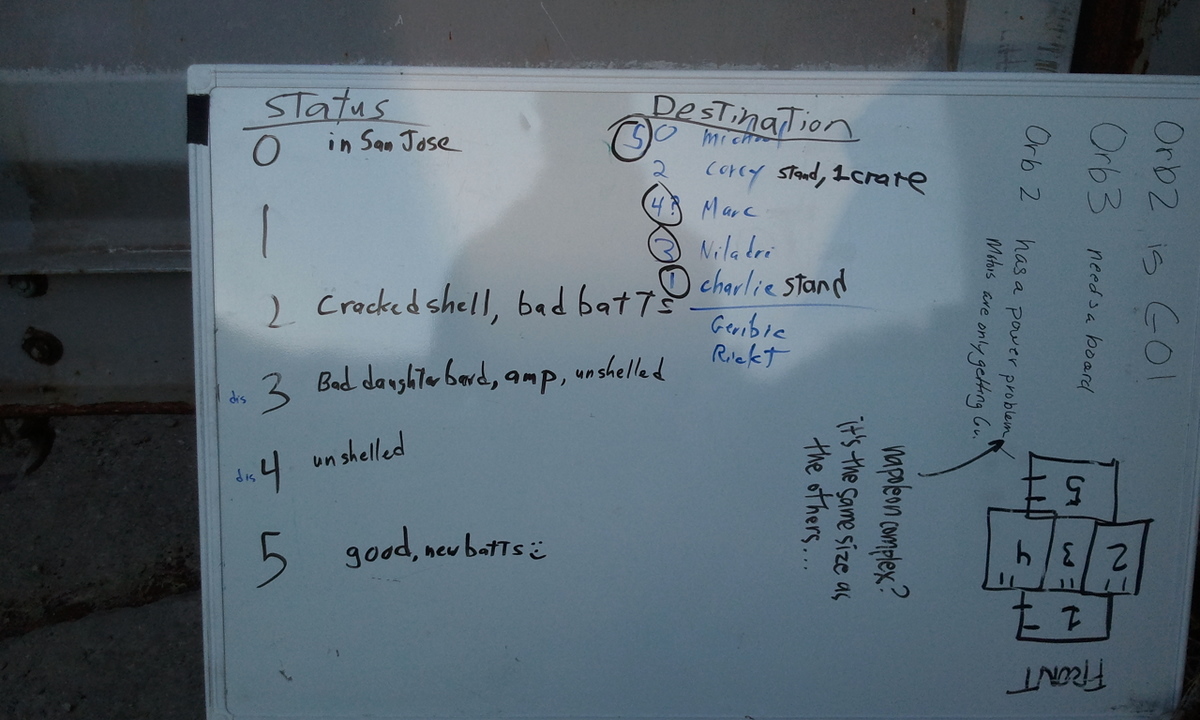 Status
0 in San Jose
1
2 Cracked shell, bad batts
dis 3 Bad daughterbord, amp, unshelled
dis 4 unshelled
5 good, new batts :)
Destination
5 0
2 Corey stand, 1 crate
4? Marc
3 Niladri
1 charlie stand
Geribic
Rickt
Orb2 is G01
Orb3 needs a board
Orb 2 has a power problem
Motors are only getting 6v.
napoleon complex?
it's the same size as
the others...
5
4 3 2
1
FRONT